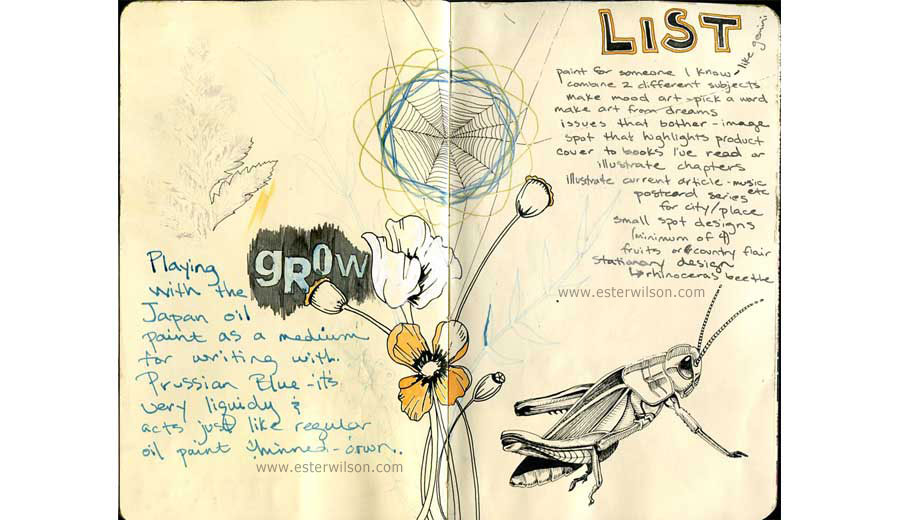 Playing
with the
Japan oil
paint as a medium
for writing with.
Prussian Blue - it's
very liquidy &
acts just like regular
oil paint thinned-down.
www.esterwilson.com
grow
LIST
paint for someone I know - like gemini
combine 2 different subjects
make mood art > pick a word
make art from dreams
issues that bother - image
spot that highlights product
cover to books I've read or
illustrate chapters
illustrate current article - music etc
postcard series
for city/place
small spot designs
(minimum of 4)
fruits or country flair
stationary design
↳ rhinoceras beetle
www.esterwilson.com